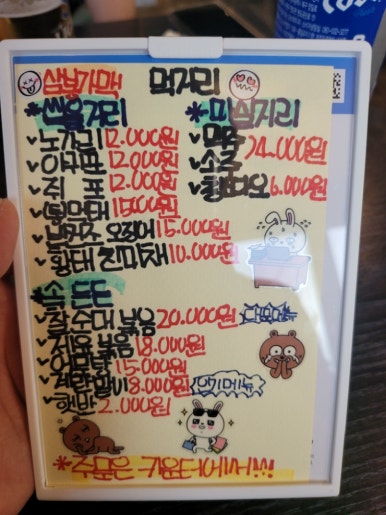 삼남가매 먹거리
*씹을거리
✓노가리 12.000원
✓아귀포 12.000원
✓쥐 포 12.000원
✓먹태 15.000원
✓버터구이 오징어 15.000원
✓황태 10.000원
*마실거리
✓맥주
✓소주 4.000원
✓6.000원
*속 든든
✓순대 볶음 20.000원
✓제육 볶음 18.000원
✓어묵탕 15.000원
✓계란말이 8.000원 인기메뉴
✓햇반 2.000원
*주문은 카운터에서!!!